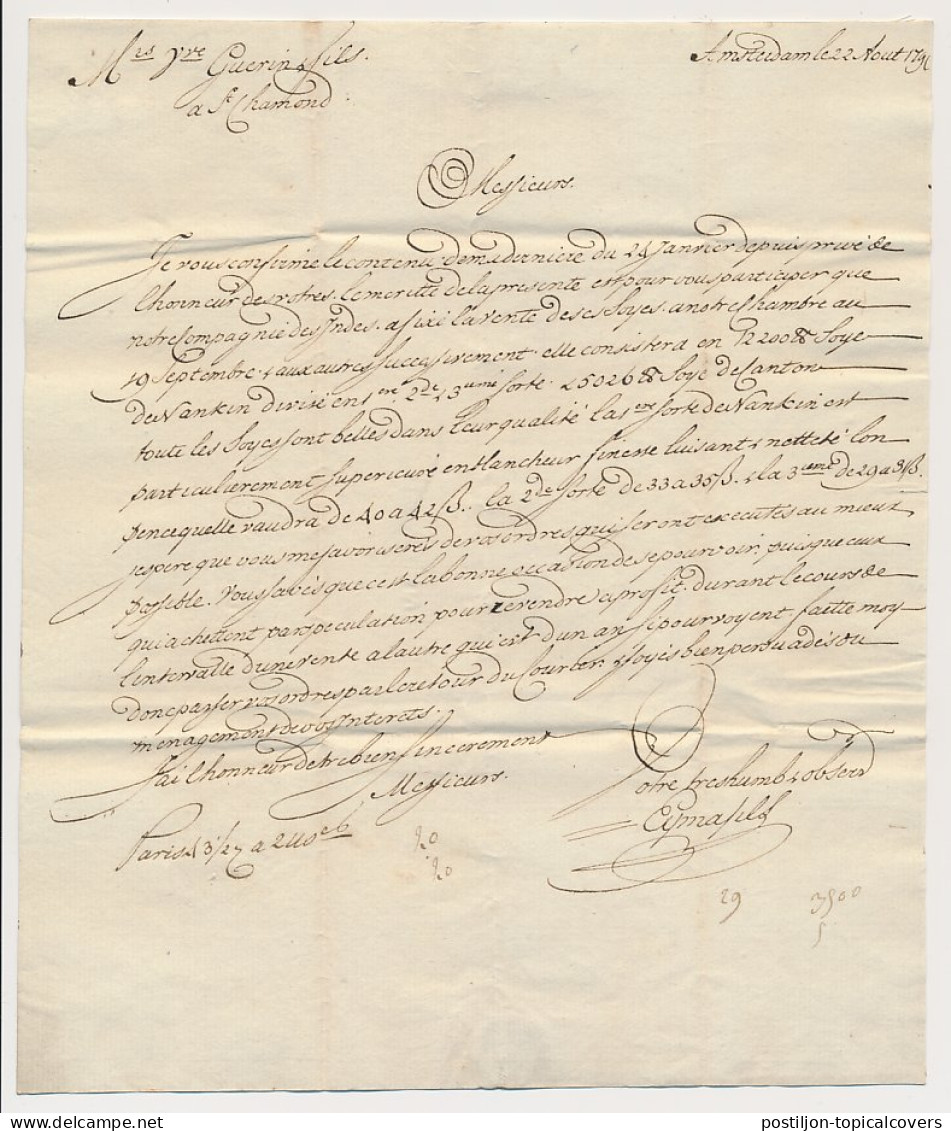 Mrs Vve Guerin & fils.
a St Chamond.
Amsterdam le 22 Aout 179
Messieurs.
Je vous confirme le contenu de ma derniere du 24 Janvier depuis privé de
lhonneur des votres. le meritte de la presente est pour vous participer que
notre Compagnie des Indes. a fixé la vente de ses Soyes. a notre Chambre au
19 Septembre. & aux autres successivement. elle consistera en 72200 ℔ Soye
de Nankin divisé en 1ere. 2de & 3ieme sorte. & 5026 ℔ Soye de Canton
toute les Soyes sont belles dans leur qualité la 1ere sorte de Nankin est
particulierement superieure en blancheur finesse luisant & netteté lon
pence quelle vaudra de 40 a 42 ß. la 2de sorte de 33 a 35 ß. & la 3ieme de 29 a 31 ß.
jespere que vous me favoriserés de vos ordres qui seront executés au mieux
possible. Vous savés que cest la bonne occasion de se pourvoir. puisque ceux
qui achettent par speculation pour revendre a profit. durant le cours de
lentervalle dune vente a lautre qui est dun an si pourvoyent. faitte moy
donc passer vos ordres par le retour du Courier. & soyés bien persuadés du
menagement de vos Interets.
Jai lhonneur detre bien sincerement
Messieurs.
Votre tres humb & obserd
Paris & 3/27 a 2 us
20
20
29 3500
5
postiljon-topicalcovers